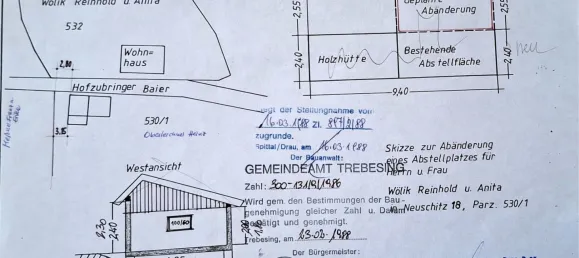 Wölik Reinhold u. Anita
532
Wohn=
haus
2,80
Hofzubringer Baier
530/1
3,15
Westansicht
100/60
2,30
2,40
2,55
Geplante
Abänderung
2,55
2,40
Holzhütte
Bestehende
Abstellfläche
2,40
9,40
liegt der Stellungnahme vom
16.03.1988 Zl. 897/2/88
zugrunde.
Spittal/Drau, am 16.03.1988
Der Bauanwalt:
GEMEINDEAMT TREBESING
Zahl:
Wird gem. den Bestimmungen der Bau-
genehmigung gleicher Zahl u. Datum
bestätigt und genehmigt.
Trebesing, am 23.03.1988
Der Bürgermeister:
Skizze zur Abänderung
eines Abstellplatzes für
Herrn u. Frau
Wölik Reinhold u. Anita
in Neuschitz 18, Parz. 530/1